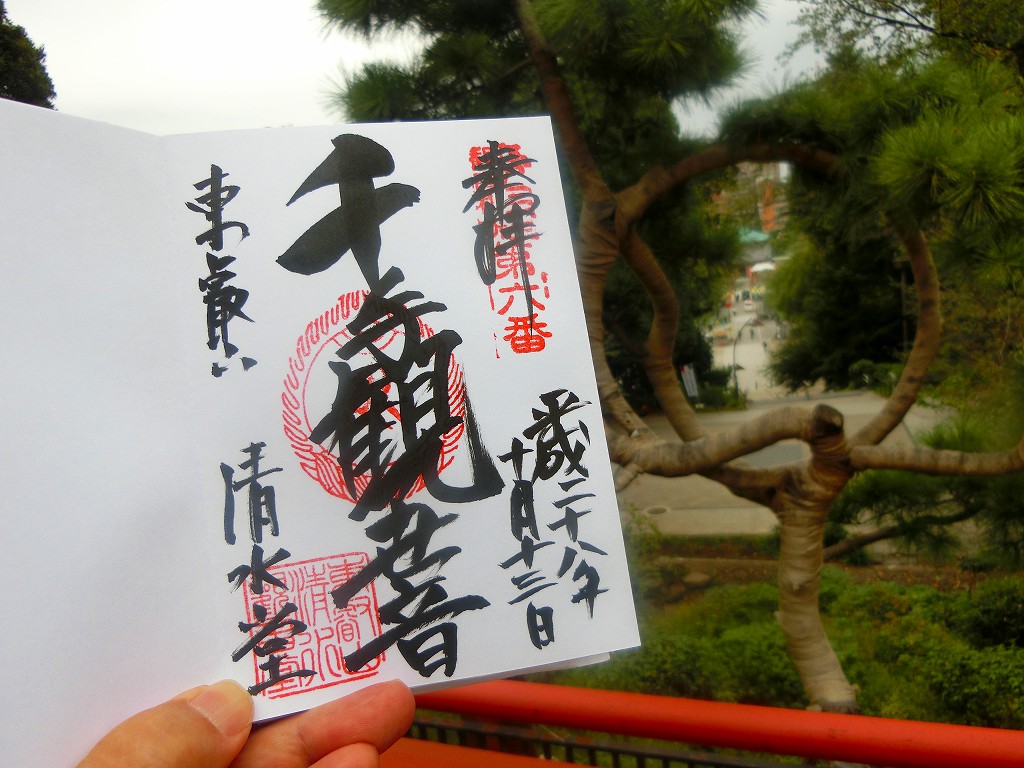 奉拝
第六番
平成二十八年
十月十三日
千手観音
東叡山
清水堂